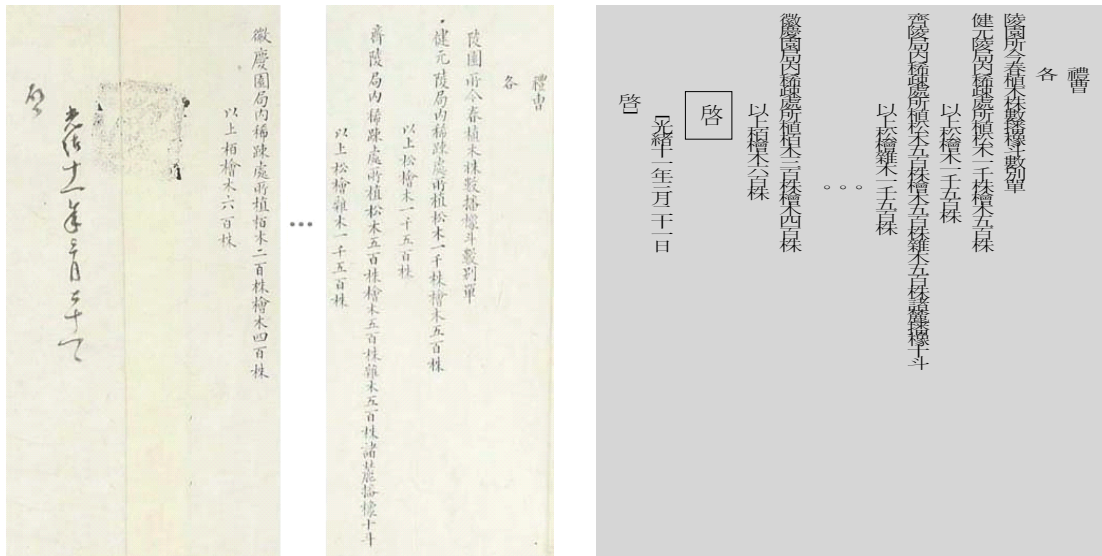 禮曹
各
陵園所今春植木株數播橡斗數別單
健元陵局內稀踈處所植松木一千株檜木五百株
以上松檜木一千五百株
齊陵局內稀踈處所植松木五百株檜木五百株雜木五百株諸麓播橡十斗
以上松檜雜木一千五百株
徽慶園局內稀踈處所植栢木二百株檜木四百株
以上栢檜木六百株
光緖十一年三月二十一日
啓
禮曹
各
陵園所今春植木株數播橡斗數別單
健元陵局內稀踈處所植松木一千株檜木五百株
以上松檜木一千五百株
齊陵局內稀踈處所植松木五百株檜木五百株雜木五百株諸麓播橡十斗
以上松檜雜木一千五百株
。。。
徽慶園局內稀踈處所植栢木二百株檜木四百株
以上栢檜木六百株
啓
[光緖十一年三月二十一日
啓]